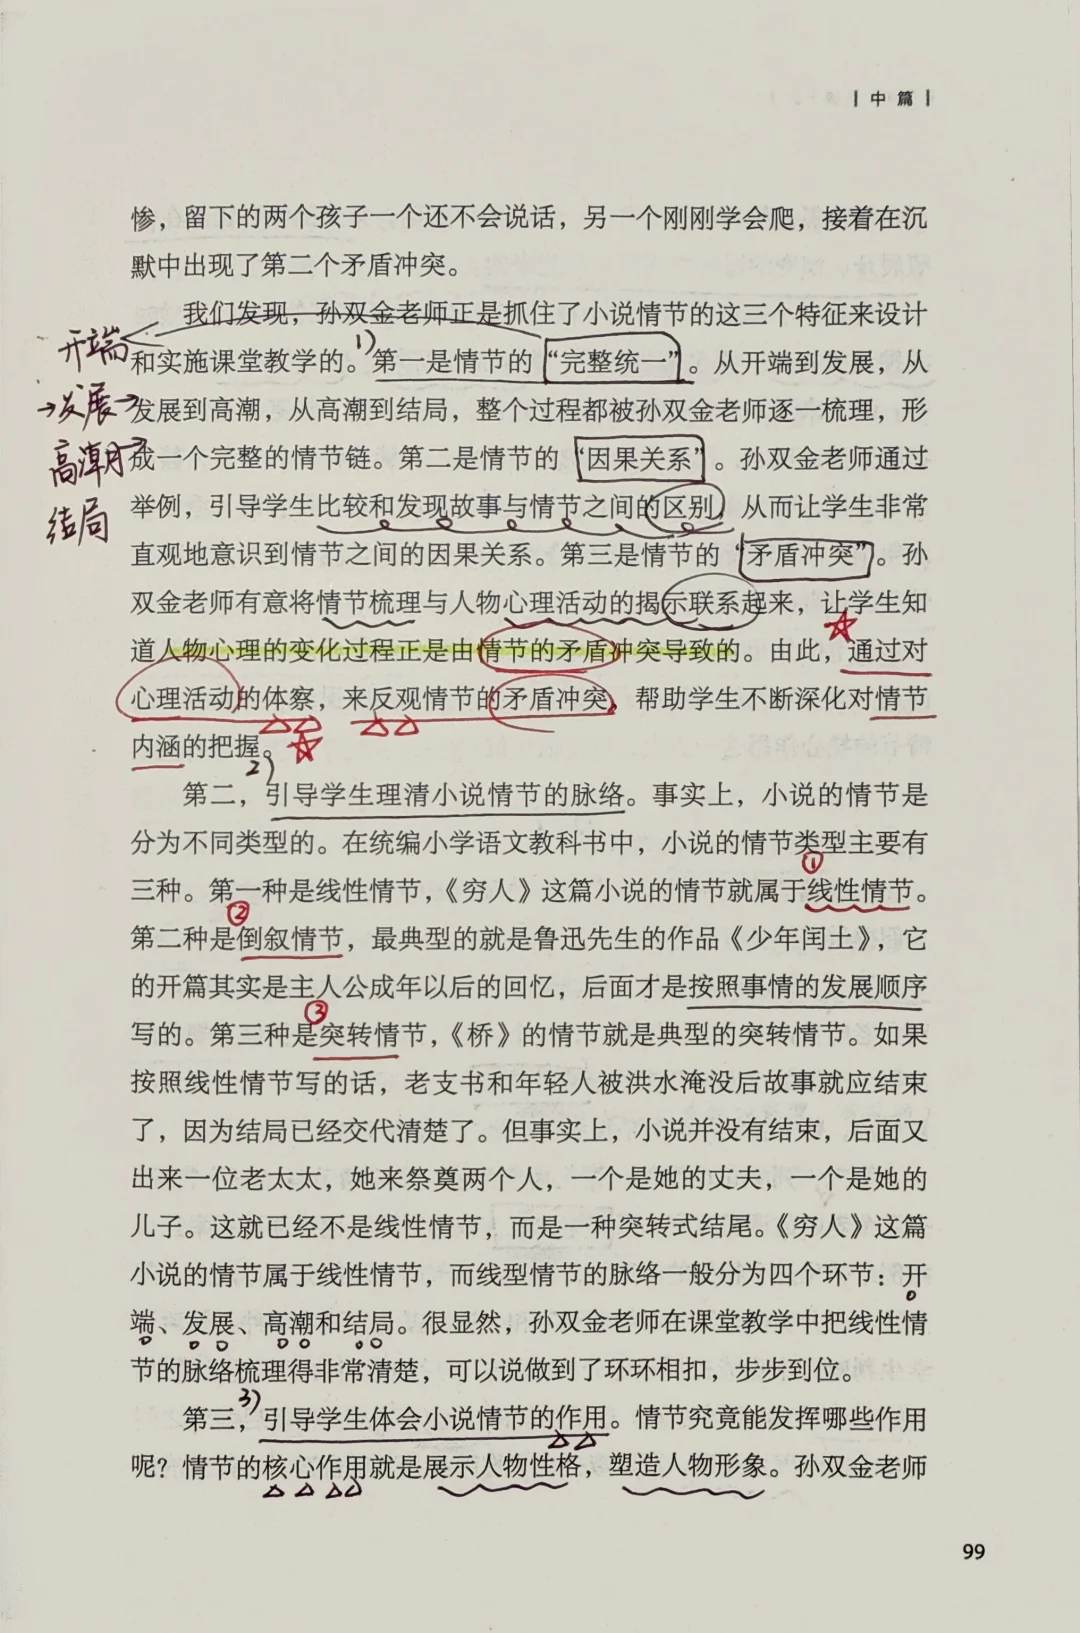 中篇
惨，留下的两个孩子一个还不会说话，另一个刚刚学会爬，接着在沉
默中出现了第二个矛盾冲突。
我们发现，孙双金老师正是抓住了小说情节的这三个特征来设计
和实施课堂教学的。第一是情节的“完整统一”。从开端到发展，从
发展到高潮，从高潮到结局，整个过程都被孙双金老师逐一梳理，形
成一个完整的情节链。第二是情节的“因果关系”。孙双金老师通过
举例，引导学生比较和发现故事与情节之间的区别，从而让学生非常
直观地意识到情节之间的因果关系。第三是情节的“矛盾冲突”。孙
双金老师有意将情节梳理与人物心理活动的揭示联系起来，让学生知
道人物心理的变化过程正是由情节的矛盾冲突导致的。由此，通过对
心理活动的体察，来反观情节的矛盾冲突，帮助学生不断深化对情节
内涵的把握。
第二，引导学生理清小说情节的脉络。事实上，小说的情节是
分为不同类型的。在统编小学语文教科书中，小说的情节类型主要有
三种。第一种是线性情节，《穷人》这篇小说的情节就属于线性情节。
第二种是倒叙情节，最典型的就是鲁迅先生的作品《少年闰土》，它
的开篇其实是主人公成年以后的回忆，后面才是按照事情的发展顺序
写的。第三种是突转情节，《桥》的情节就是典型的突转情节。如果
按照线性情节写的话，老支书和年轻人被洪水淹没后故事就应结束
了，因为结局已经交代清楚了。但事实上，小说并没有结束，后面又
出来一位老太太，她来祭奠两个人，一个是她的丈夫，一个是她的
儿子。这就已经不是线性情节，而是一种突转式结尾。《穷人》这篇
小说的情节属于线性情节，而线型情节的脉络一般分为四个环节：开
端、发展、高潮和结局。很显然，孙双金老师在课堂教学中把线性情
节的脉络梳理得非常清楚，可以说做到了环环相扣，步步到位。
第三，引导学生体会小说情节的作用。情节究竟能发挥哪些作用
呢？情节的核心作用就是展示人物性格，塑造人物形象。孙双金老师
99
开端
→发展→
高潮→
结局
1)
2)
①
②
③
3)